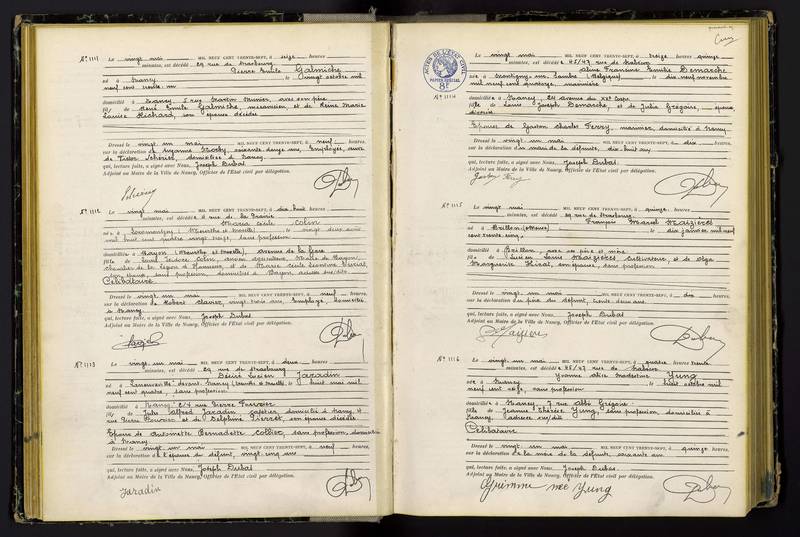 N° 1111 Le vingt mai MIL NEUF CENT TRENTE-SEPT, à seize heures
minutes, est décédé 29 rue de Strasbourg
Pierre Emile Galmiche
né à Nancy le vingt octobre mil
neuf cent trente un
domicilié à Nancy, 5 rue Martin Musier, avec son père
fils de René Emile Galmiche, et de Reine Marie
Louise Richard, son épouse décédée
Dressé le vingt un mai MIL NEUF CENT TRENTE-SEPT, à neuf heures,
sur la déclaration de Suzanne soixante douze ans, employée, veuve
de Victor Schérer, domiciliée à Nancy.
qui, lecture faite, a signé avec Nous, Joseph Dubas
Adjoint au Maire de la Ville de Nancy, Officier de l'Etat civil par délégation.
N° 1112 Le vingt mai MIL NEUF CENT TRENTE-SEPT, à dix huit heures
minutes, est décédée 4 rue de la Prairie
Marie Cécile Colin
née à (Meurthe et Moselle) le vingt deux avril
mil huit cent quatre vingt treize, sans profession
domiciliée à Bayon (Meurthe et Moselle), avenue de la Gare
fille de Louis Isidore Colin, ancien Maire de Bayon,
chevalier de la Légion d'Honneur, et de Marie Cécile Léontine
son épouse, sans profession, domiciliés à Bayon, adresse susdite
Célibataire
Dressé le vingt un mai MIL NEUF CENT TRENTE-SEPT, à neuf heures,
sur la déclaration de Robert vingt trois ans, employé, domicilié
à Nancy.
qui, lecture faite, a signé avec Nous, Joseph Dubas
Adjoint au Maire de la Ville de Nancy, Officier de l'Etat civil par délégation.
N° 1113 Le vingt un mai MIL NEUF CENT TRENTE-SEPT, à deux heures
minutes, est décédé 29 rue de Strasbourg
Désiré Lucien Jaradin
né à Laneuveville devant Nancy (Meurthe et Moselle) le huit mai mil
neuf cent quatre, sans profession
domicilié à Nancy 2/4 rue Pierre
fils de Jules Alfred Jaradin, cafetier, domicilié à Nancy, 4
rue Pierre et de Delphine Pierret, son épouse décédée
Epoux de Antoinette Bernadette Collier, sans profession, domiciliée
à Nancy
Dressé le vingt un mai MIL NEUF CENT TRENTE-SEPT, à neuf heures,
sur la déclaration de l'épouse du défunt, vingt cinq ans
qui, lecture faite, a signé avec Nous, Joseph Dubas
Adjoint au Maire de la Ville de Nancy, Officier de l'Etat civil par délégation.
Jaradin
ACTES DE L'ÉTAT CIVIL
PAPIER SPÉCIAL
8f
N° 1114
Le vingt mai MIL NEUF CENT TRENTE-SEPT, à treize heures quinze
minutes, est décédée 45/47 rue de Nabécor
Aline Francine Emilie Demarche
née à Montigny sur Sambre (Belgique) le dix neuf novembre
mil neuf cent quatorze, marinière
domiciliée à Nancy, 24 avenue du XXe Corps
fille de Louis Joseph Demarche, et de Julia Grégoire, époux
divorcés
Epouse de Gaston Charles Ferry, marinier, domicilié à Nancy
Dressé le vingt un mai MIL NEUF CENT TRENTE-SEPT, à dix heures,
sur la déclaration du mari de la défunte, dix huit ans
qui, lecture faite, a signé avec Nous, Joseph Dubas
Adjoint au Maire de la Ville de Nancy, Officier de l'Etat civil par délégation.
Gaston Ferry
N° 1115 Le vingt mai MIL NEUF CENT TRENTE-SEPT, à quinze heures
minutes, est décédé 29 rue de Strasbourg
François Marcel Maizières
né à Brillon (Meuse) le dix janvier mil neuf
cent trente cinq
domicilié à Brillon, avec ses père et mère
fils de Lucien Louis Maizières cultivateur, et de Olga
Marguerite son épouse, sans profession
Dressé le vingt un mai MIL NEUF CENT TRENTE-SEPT, à dix heures,
sur la déclaration du père du défunt, trente deux ans
qui, lecture faite, a signé avec Nous, Joseph Dubas
Adjoint au Maire de la Ville de Nancy, Officier de l'Etat civil par délégation.
N° 1116 Le vingt un mai MIL NEUF CENT TRENTE-SEPT, à quatre heures trente
minutes, est décédée 45/47 rue de Nabécor
Yvonne Alice Madeleine Yung
née à Nancy le huit octobre mil
neuf cent sept, sans profession
domiciliée à Nancy, 7 rue Abbé Grégoire
fille de Jeanne Thérèse Yung, sans profession, domiciliée à
Nancy, adresse susdite
Célibataire
Dressé le vingt un mai MIL NEUF CENT TRENTE-SEPT, à quinze heures,
sur la déclaration de la mère de la défunte, soixante ans
qui, lecture faite, a signé avec Nous, Joseph Dubas
Adjoint au Maire de la Ville de Nancy, Officier de l'Etat civil par délégation.
née Yung